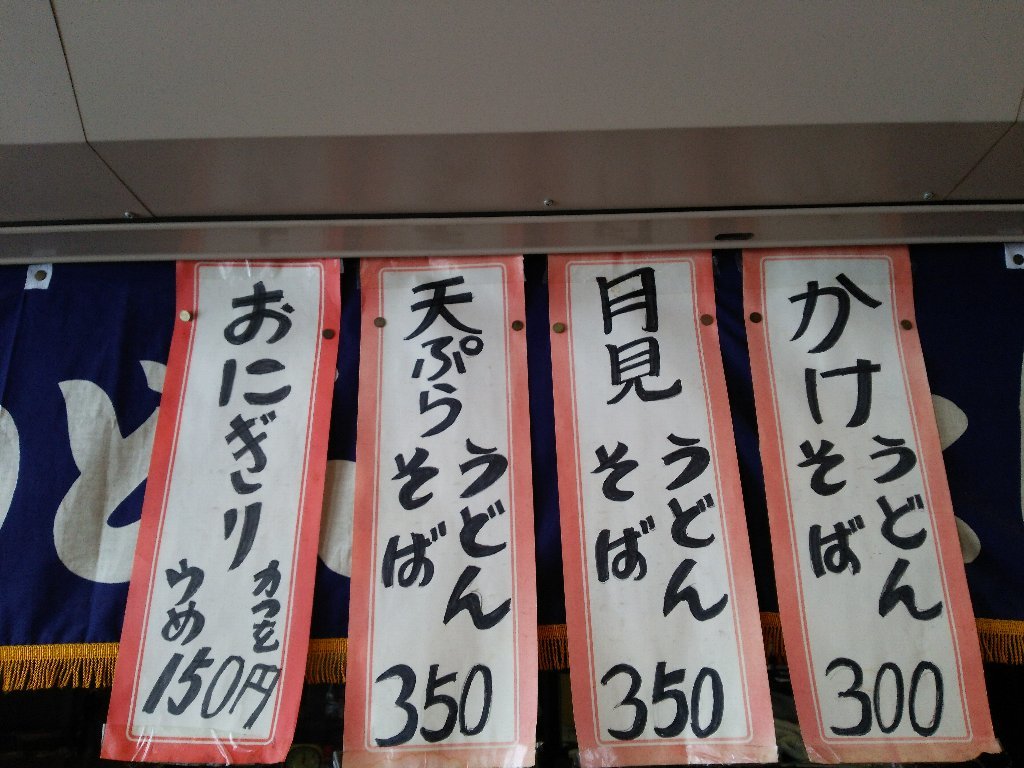 かけ
うどん
そば
300
月見
うどん
そば
350
天ぷら
うどん
そば
350
おにぎり
かつを
うめ
150円